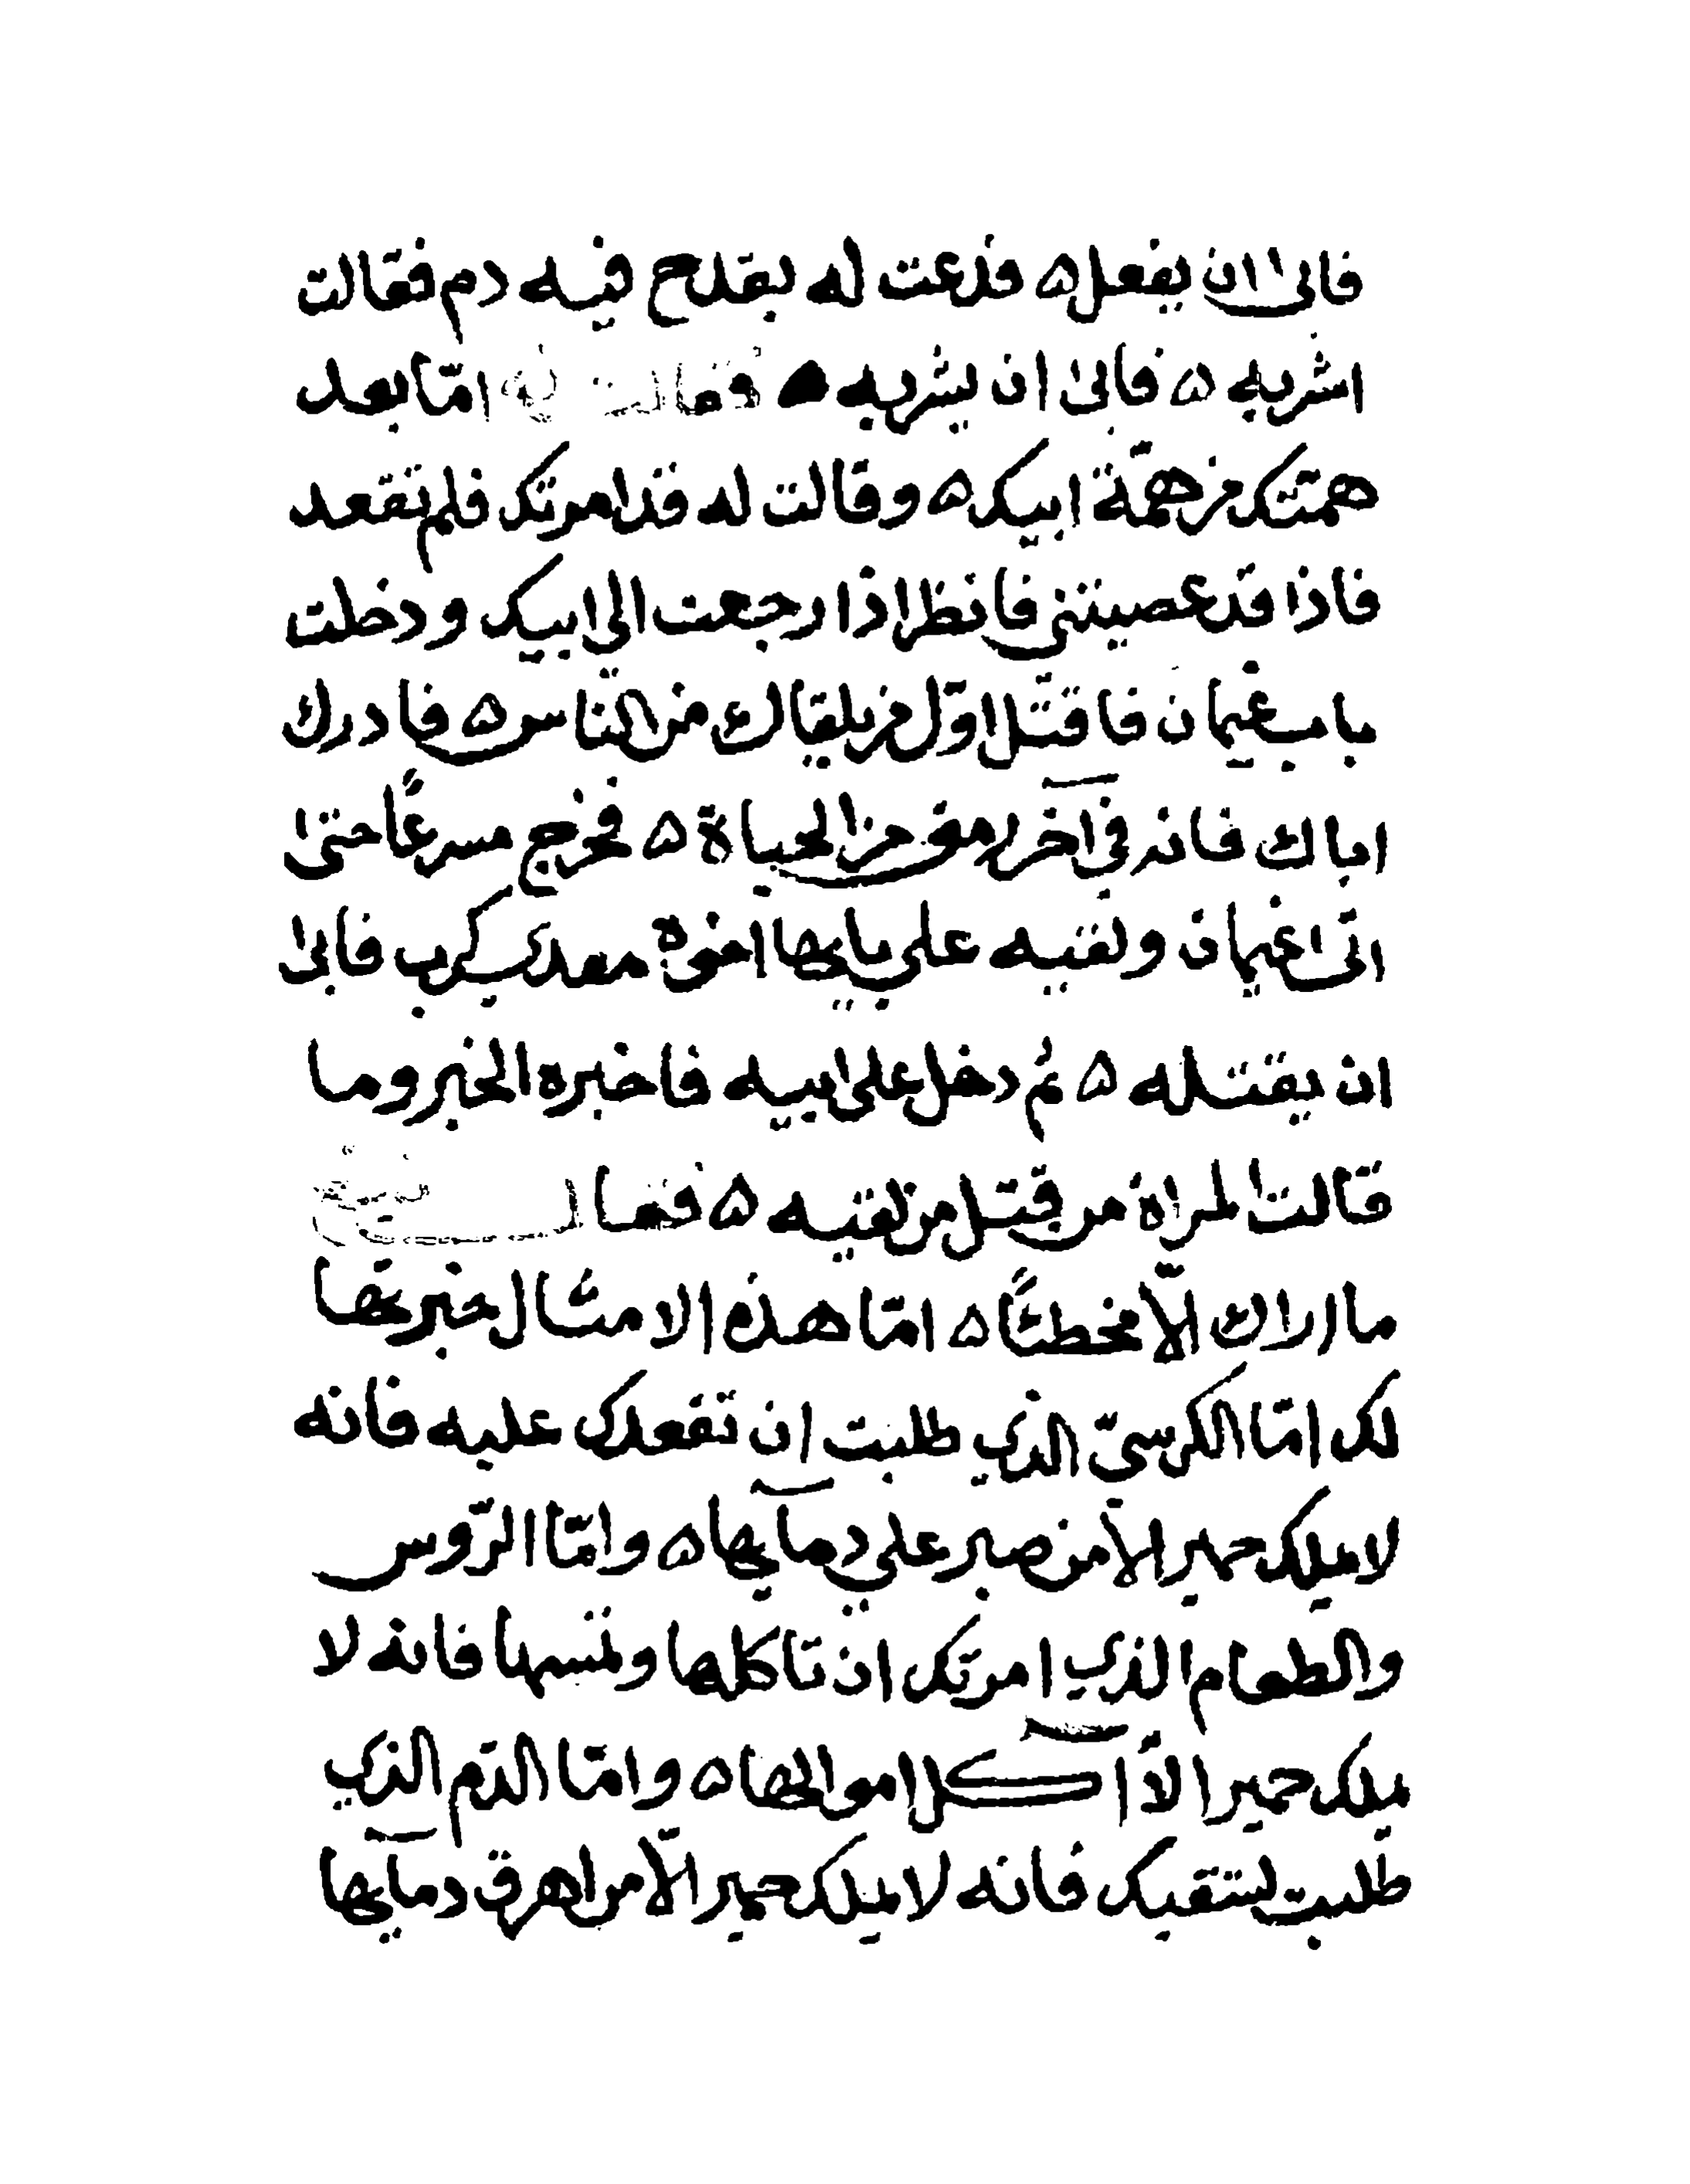 فابىٰ ان يفعل ۵ فدعت له بقدح فيه دم فقالت
اشربه ۵ فابىٰ ان يشربه ۵ فقالت له امّا بعد
همّتك من همّة ابيك ۵ وقالت له قد امرتك فلم تقعد
فاذا قد عصيتني فانظر اذا رجعت الى ابيك ودخلت
باب غيمان فاقتل اوّل من يلقاك من النّاس ۵ فادرك
اباك فانه في آخر رمق من الحياة ۵ فخرج مسرعًا حتىٰ
اتىٰ غيمان ولقيه على بابها اخوه معدي كرب فابىٰ
ان يقتله ۵ ثم دخل على ابيه فاخبره الخبر وما
قالت المراة من قتل من لقيه ۵ فقال
ما اراك الّا مخطئًا ۵ امّا هذه الامثال خبرتها
لك امّا الكرسيّ الذي طلبت ان تقعدك عليه فانه
لا يملك حمير الّا من صبر على دمآيها ۵ وامّا الرّوس
والطعام الذي امرتك ان تاكلها وتمسها فانه لا
يملك حمير الّا آكل اموالها ۵ وامّا الدّم الذي
طلبت لتسقيك فانه لا يملك حمير الّا من اهرق دمآيها